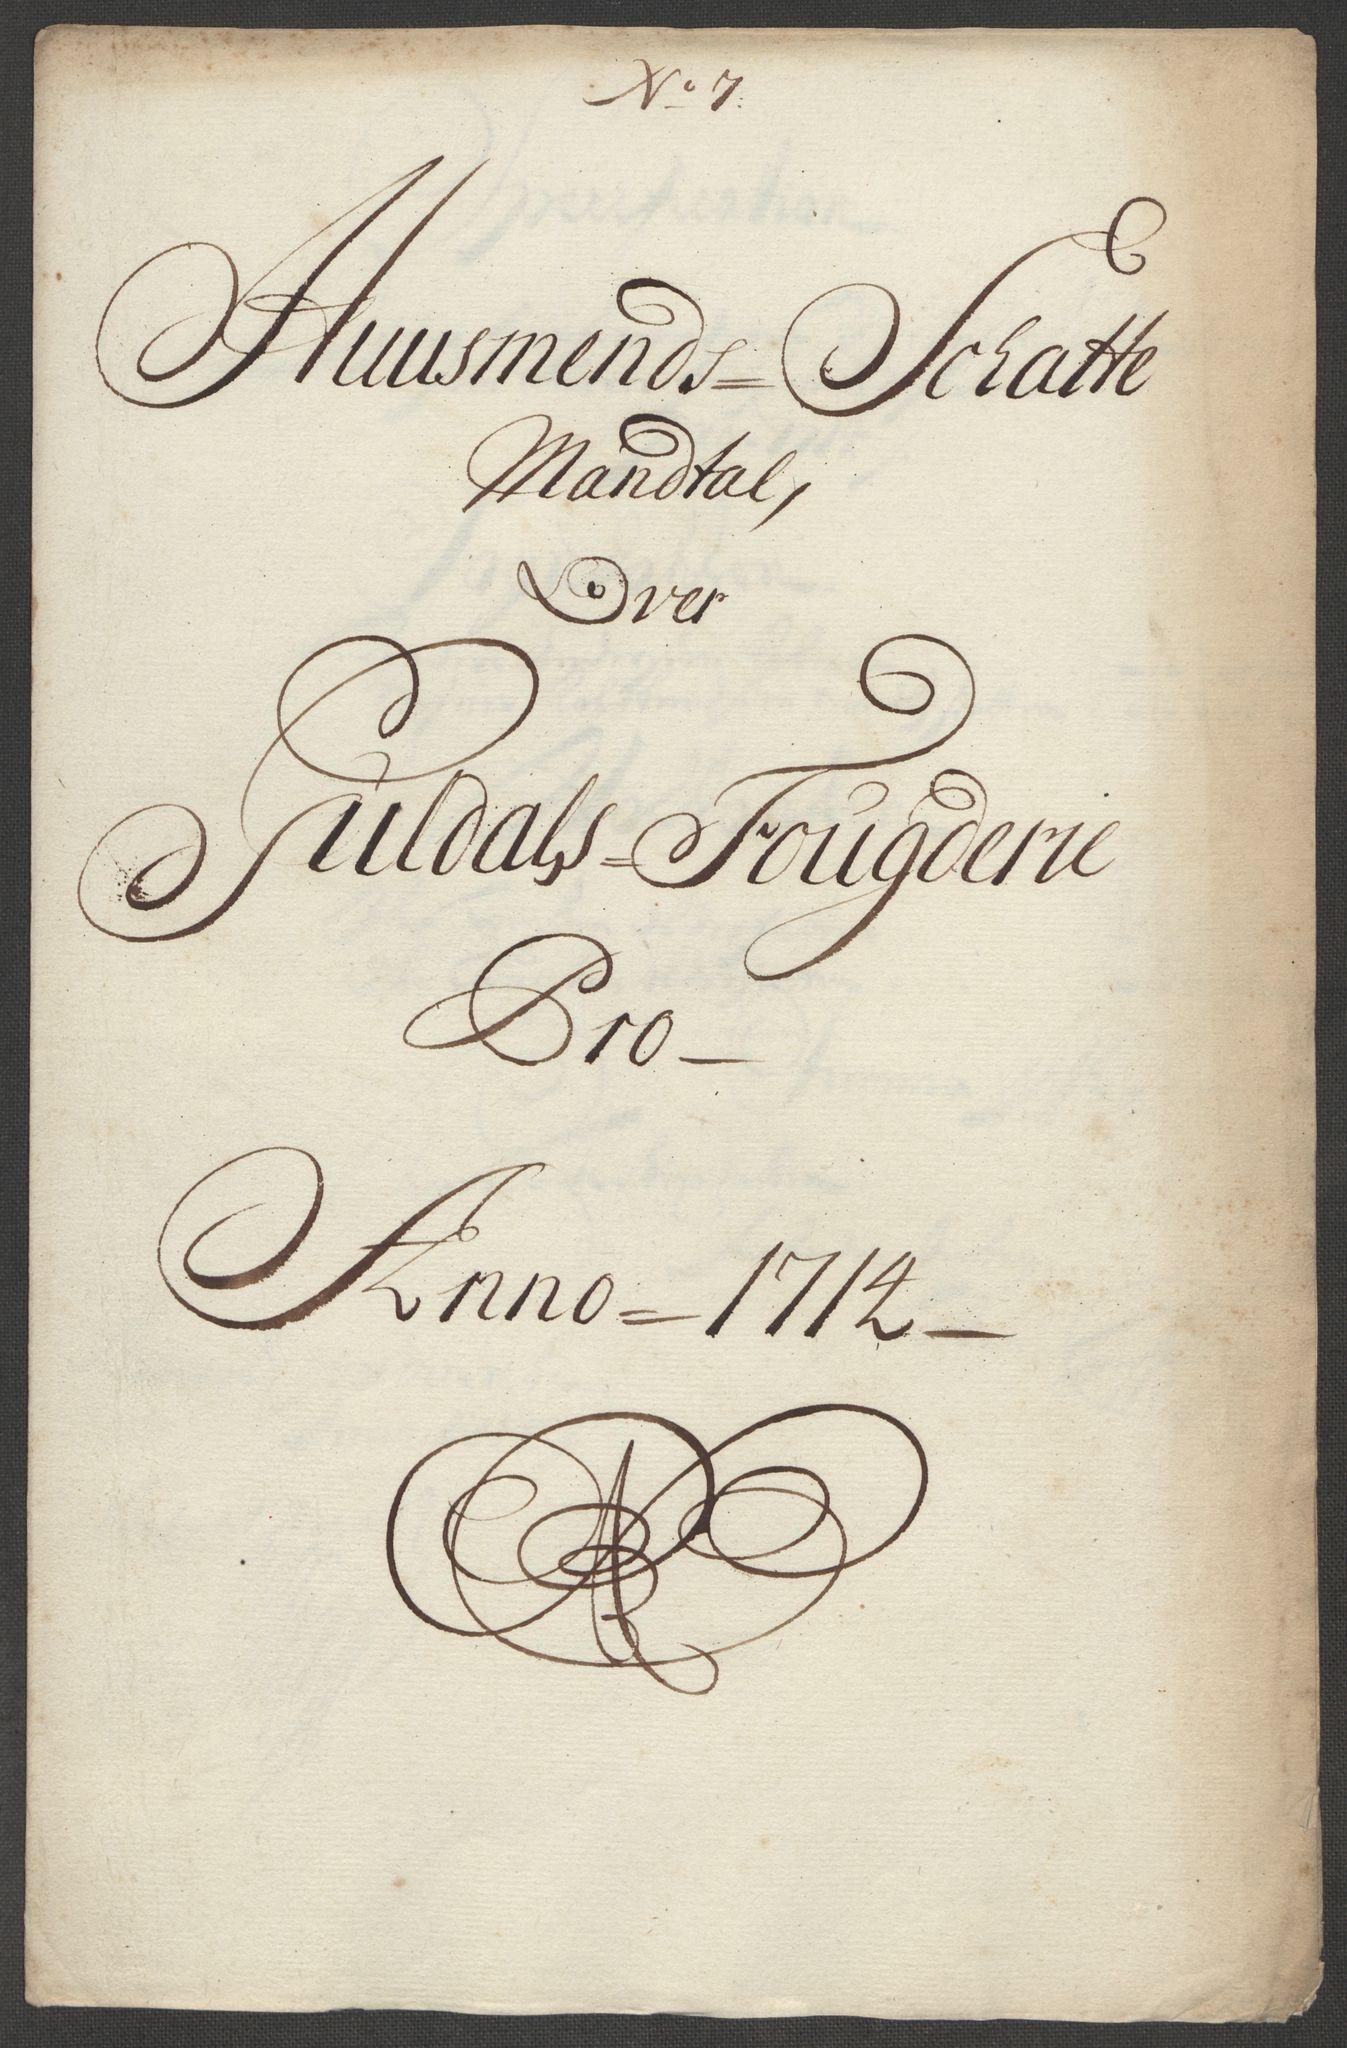 No 7.
Huusmends= Schatte
Mandtal,
Over
Guldals= Fougderie
Pro—
Anno= 1714—